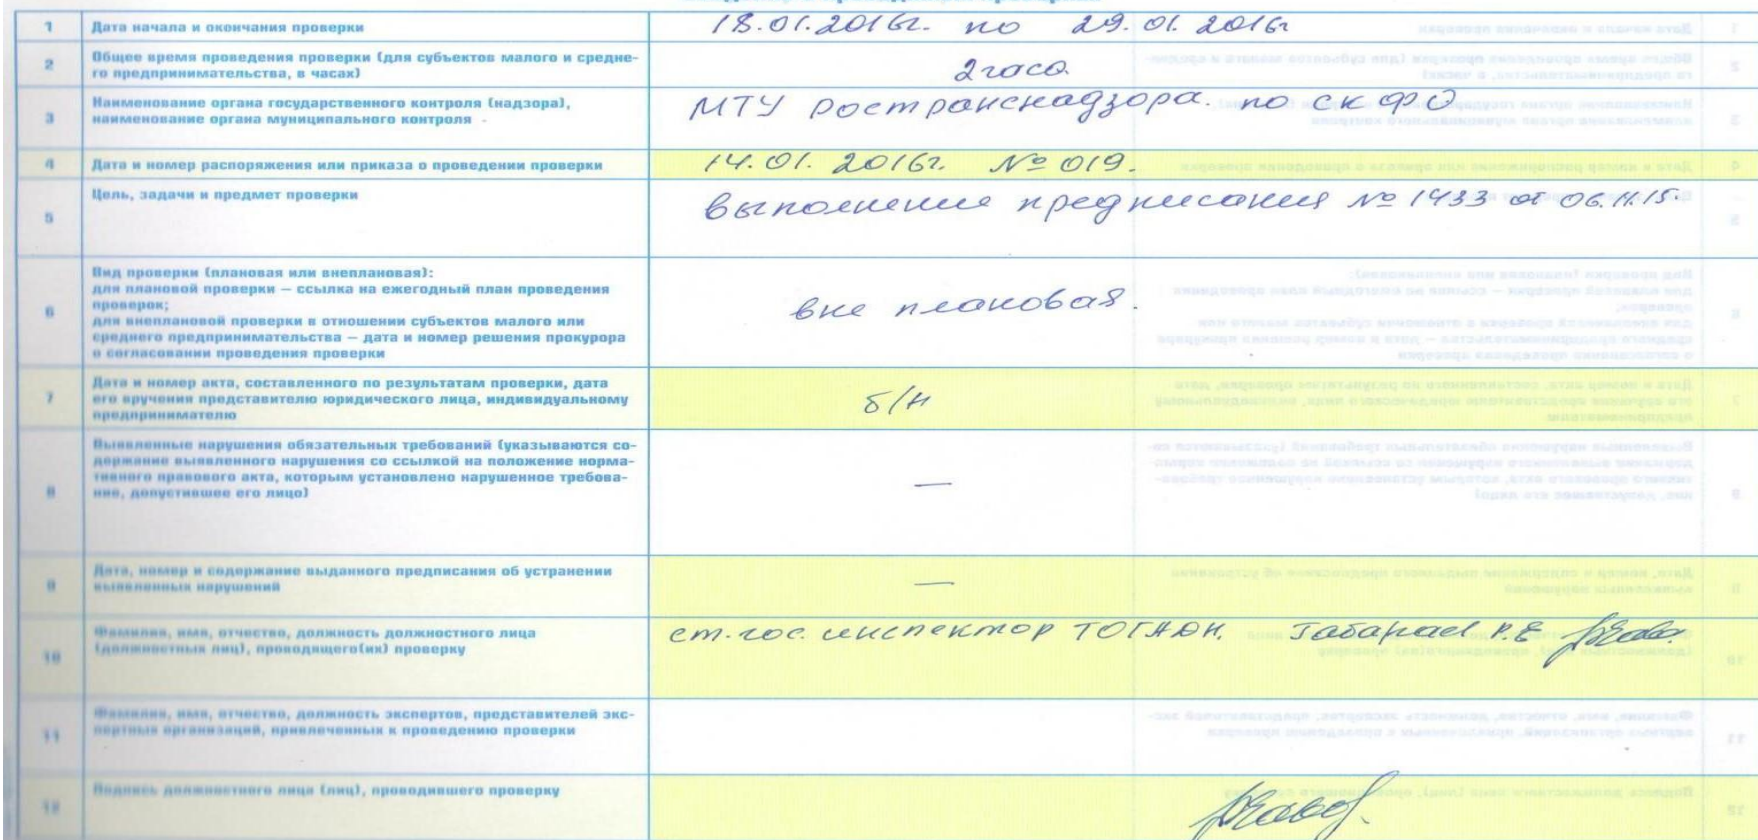 1 Дата начала и окончания проверки 18.01.2016г. по 29.01.2016г
2 Общее время проведения проверки (для субъектов малого и средне-
го предпринимательства, в часах) 2 часа
3 Наименование органа государственного контроля (надзора),
наименование органа муниципального контроля МТУ Ространснадзора. по СКФО
4 Дата и номер распоряжения или приказа о проведении проверки 14.01.2016г. № 019.
5 Цель, задачи и предмет проверки выполнение предписания № 1433 от 06.11.15.
6 Вид проверки (плановая или внеплановая):
для плановой проверки — ссылка на ежегодный план проведения
проверок;
для внеплановой проверки в отношении субъектов малого или
среднего предпринимательства — дата и номер решения прокурора
о согласовании проведения проверки
вне плановая.
7 Дата и номер акта, составленного по результатам проверки, дата
его вручения представителю юридического лица, индивидуальному
предпринимателю
б/н
8 Выявленные нарушения обязательных требований (указываются со-
держание выявленного нарушения со ссылкой на положение норма-
тивного правового акта, которым установлено нарушенное требова-
ние, допустившее его лицо)
—
9 Дата, номер и содержание выданного предписания об устранении
выявленных нарушений
—
10 Фамилия, имя, отчество, должность должностного лица
(должностных лиц), проводящего(их) проверку
ст. гос. инспектор ТОГАДН. Р.Е
11 Фамилия, имя, отчество, должность экспертов, представителей экс-
пертных организаций, привлеченных к проведению проверки
12 Подпись должностного лица (лиц), проводившего проверку